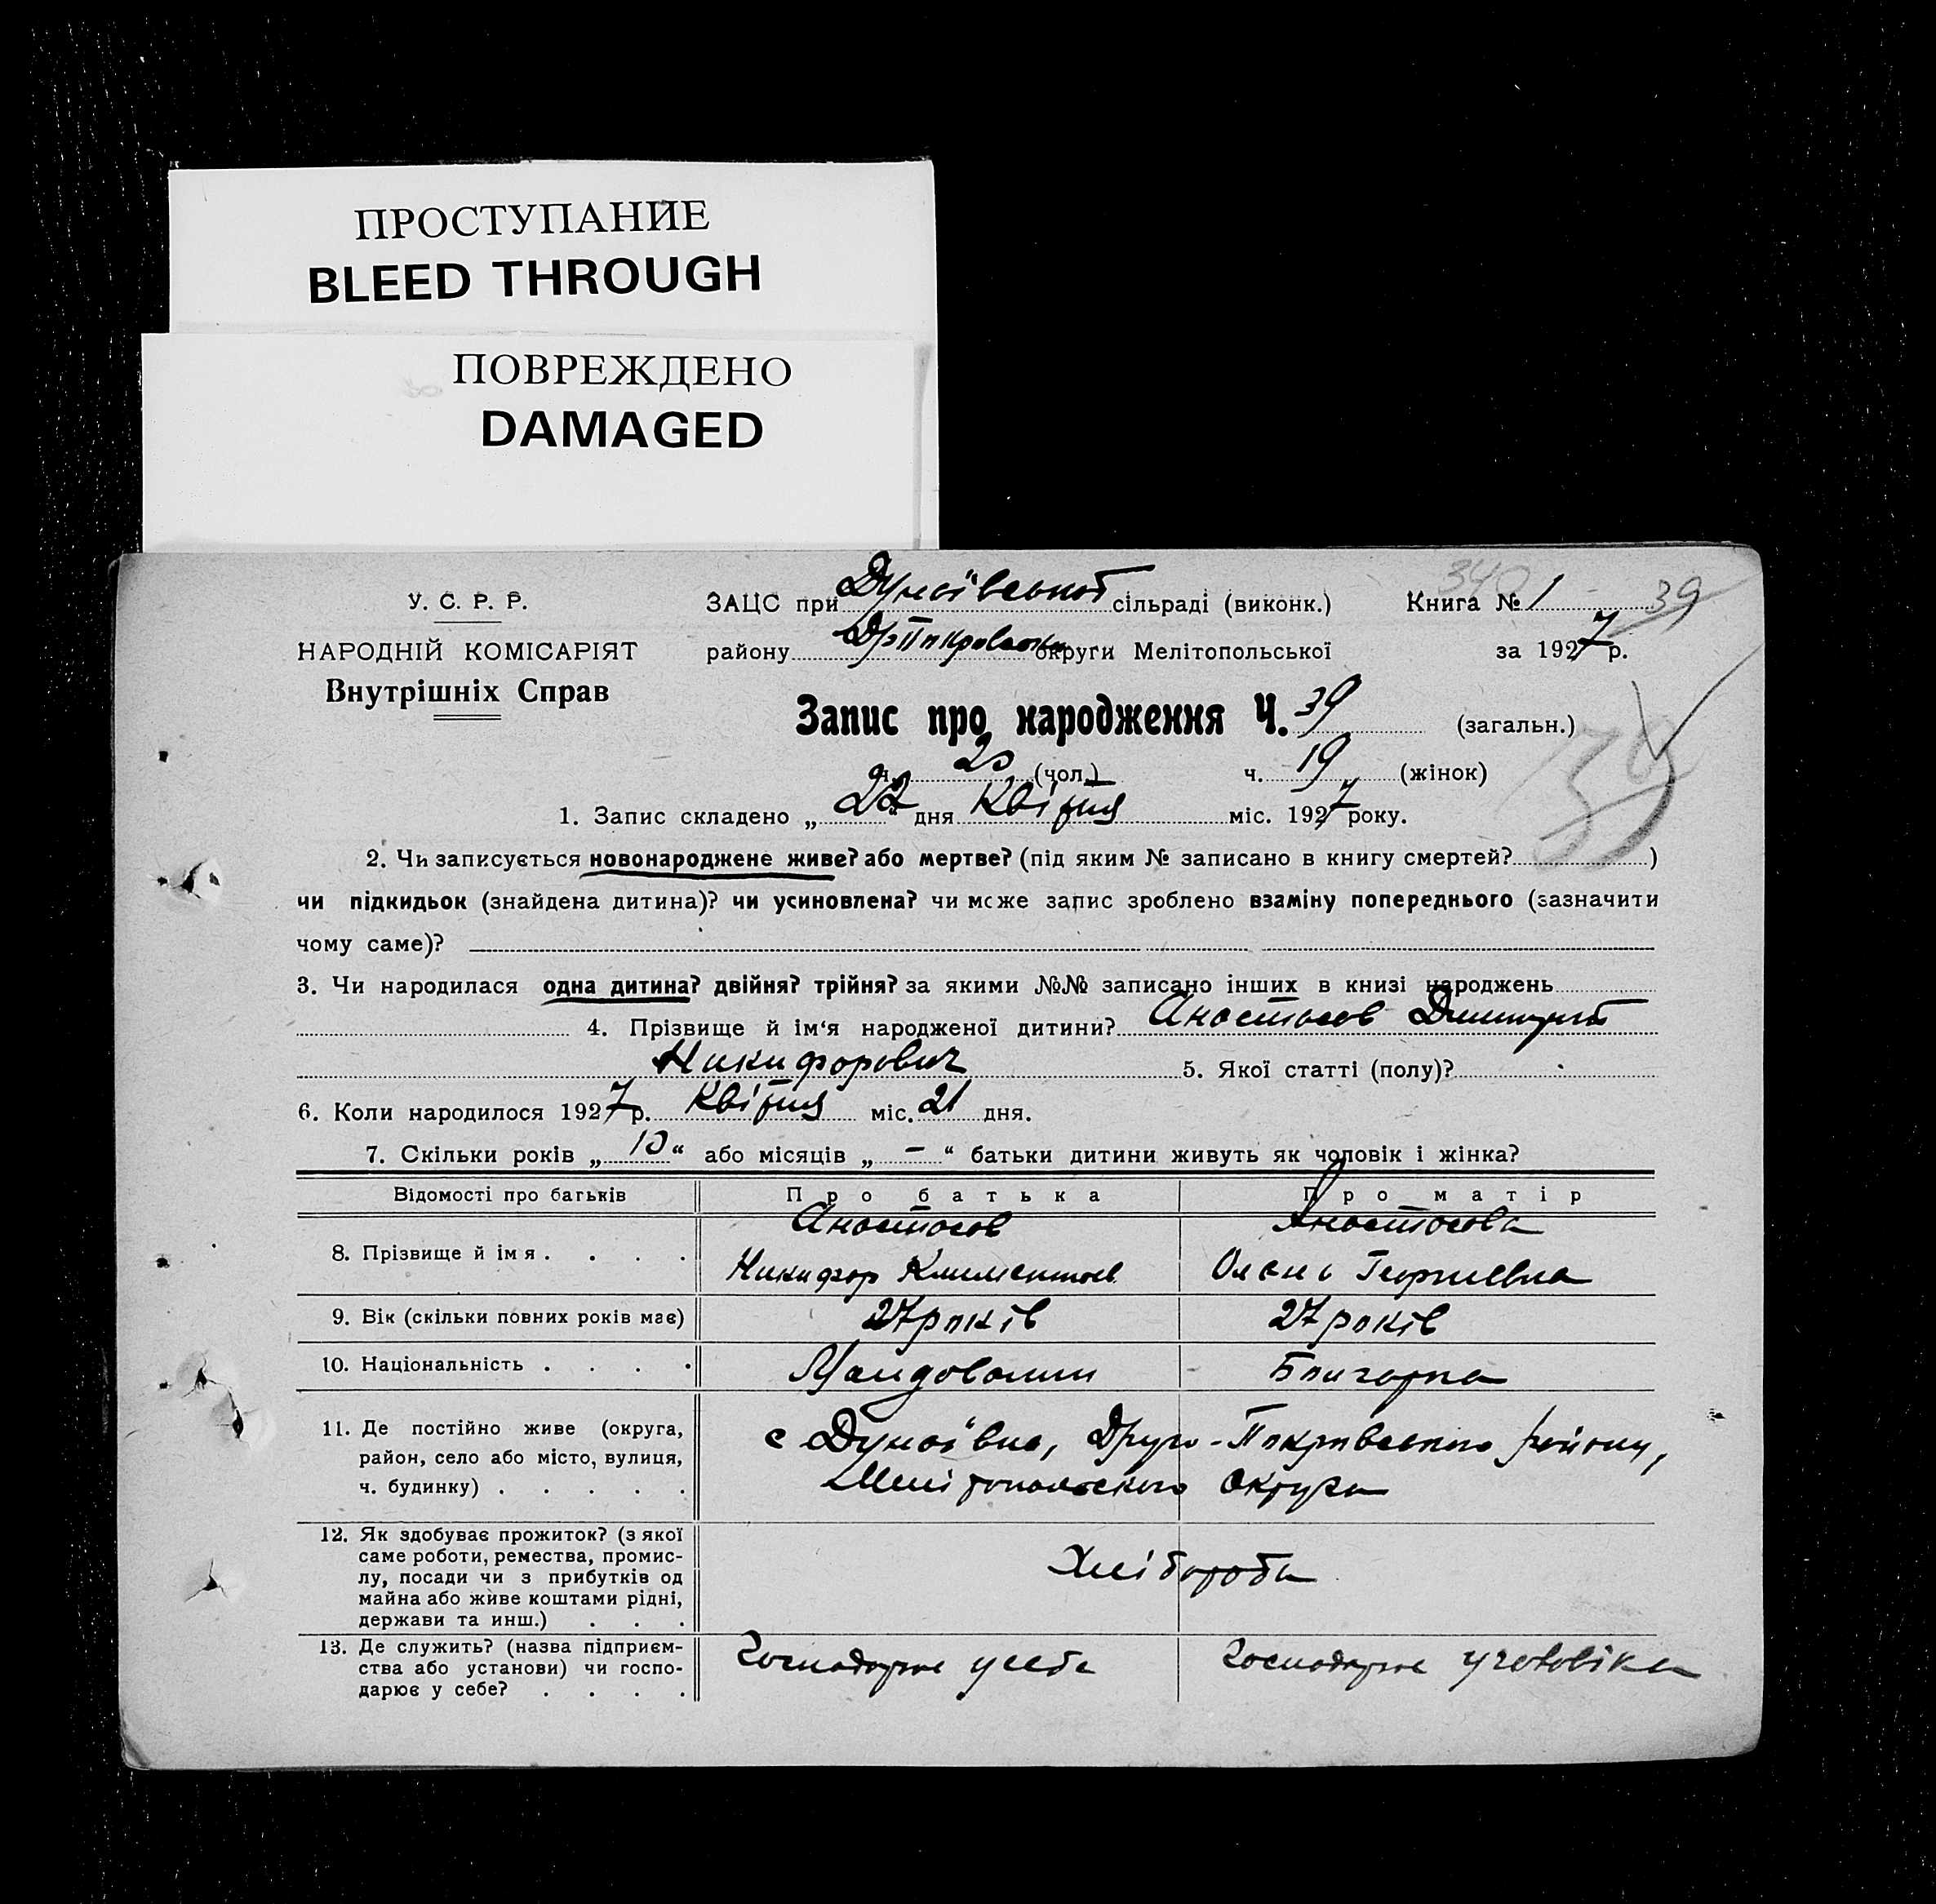 ПРОСТУПАНИЕ
BLEED THROUGH
ПОВРЕЖДЕНО
DAMAGED
У. С. Р. Р.
НАРОДНІЙ КОМІСАРІЯТ
Внутрішніх Справ
ЗАЦС при Дунаївській сільраді (виконк.) Книга № 1 39
340
району округи Мелітопольської за 1927 р.
Запис про народження Ч. 39 (загальн.)
ч. 20 (чол.) ч. 19 (жінок)
39
1. Запис складено „ 22 “ дня Квітня міс. 1927 року.
2. Чи записується новонароджене живе? або мертве? (під яким № записано в книгу смертей? )
чи підкидьок (знайдена дитина)? чи усиновлена? чи може запис зроблено взаміну попереднього (зазначити
чому саме)?
3. Чи народилася одна дитина? двійня? трійня? за якими №№ записано інших в книзі народжень
4. Прізвище й ім‘я народженої дитини? Анастасов Дмитрий
Никифорович 5. Якої статті (полу)?
6. Коли народилося 1927 р. Квітня міс. 21 дня.
7. Скільки років „ 10 “ або місяців „ – “ батьки дитини живуть як чоловік і жінка?
Відомості про батьків Про батька Про матір
8. Прізвище й імя . . . . Анастасов Анастасова
Никифор Климентов. Олена Георгиевна
9. Вік (скільки повних років має) 27 років 27 років
10. Національність . . . . Болгарка
11. Де постійно живе (округа,
район, село або місто, вулиця,
ч. будинку) . . . . .
с Дунаївка, Друго-Покровського району,
Мелітопольского округа
12. Як здобуває прожиток? (з якої
саме роботи, ремества, промис-
лу, посади чи з прибутків од
майна або живе коштами рідні,
держави та инш.) . . .
Хлібороба
13. Де служить? (назва підприєм-
ства або установи) чи госпо-
дарює у себе? . . . .
Господарює у себе Господарює у чоловіка